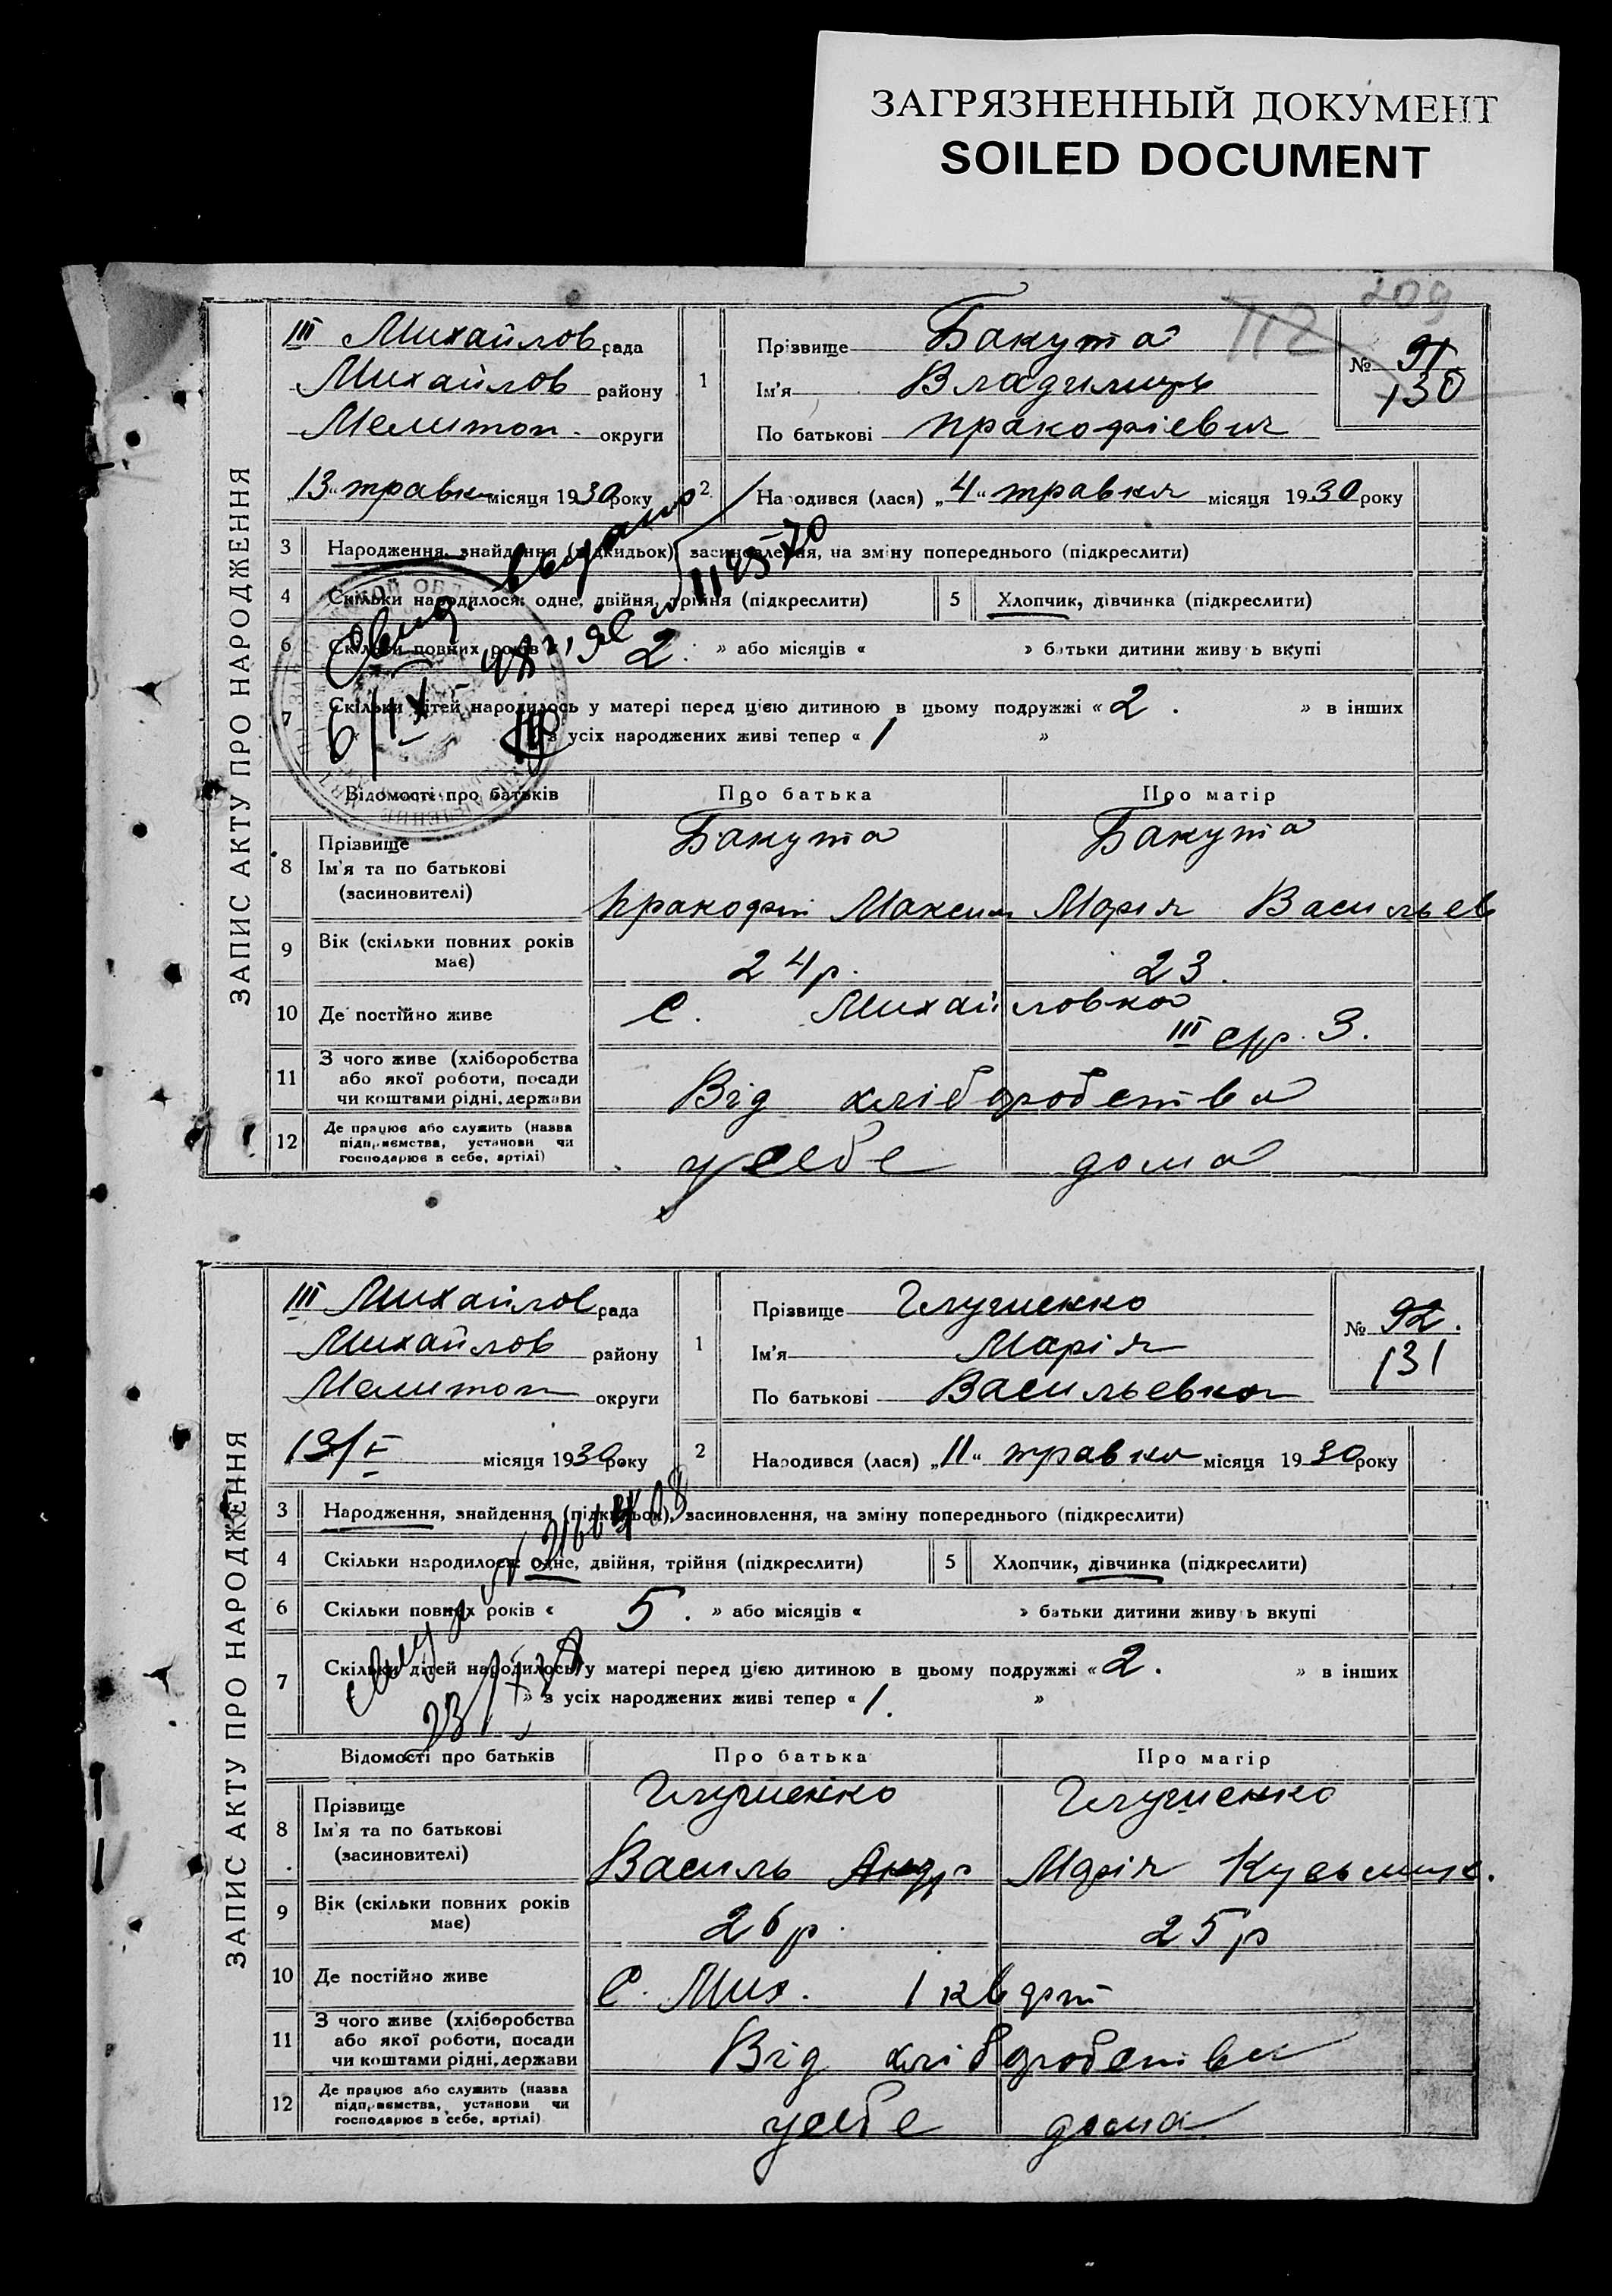 ЗАГРЯЗНЕННЫЙ ДОКУМЕНТ
SOILED DOCUMENT
209
112
ЗАПИС АКТУ ПРО НАРОДЖЕННЯ
III Михайлов рада
Михайлов району
Мелитоп. округи
„13“ травня місяця 1930 року
1 Прізвище Бакута
Ім'я Владимир
По батькові Пракофіевич
№ 91
130
2 Народився (лася) „4“ травня місяця 1930 року
3 Народження, знайдення (підкидьок), засиновлення, на зміну попереднього (підкреслити)
4 Скільки народилося: одне, двійня, трійня (підкреслити) 5 Хлопчик, дівчинка (підкреслити)
6 Скільки повних років « 2. » або місяців « » батьки дитини живуть вкупі
7 Скільки дітей народилось у матері перед цією дитиною в цьому подружжі «2. » в інших
« » з усіх народжених живі тепер «1 »
Відомості про батьків Про батька Про матір
8 Прізвище Бакута Бакута
Ім'я та по батькові
(засиновителі) Пракофій Максим Марія Васильев
9 Вік (скільки повних років має) 24 р. 23.
10 Де постійно живе С. Михайловка
III 3.
11 З чого живе (хліборобства
або якої роботи, посади
чи коштами рідні, держави Від хліборобства
12 Де працює або служить (назва
підприємства, установи чи
господарює в себе, артілі) у себе дома
ЗАПИС АКТУ ПРО НАРОДЖЕННЯ
III Михайлов рада
Михайлов району
Мелитоп округи
13/V місяця 1930 року
1 Прізвище Глушенко
Ім'я Марія
По батькові Васильевна
№ 92.
131
2 Народився (лася) „11“ травня місяця 1930 року
3 Народження, знайдення (підкидьок), засиновлення, на зміну попереднього (підкреслити)
4 Скільки народилося: одне, двійня, трійня (підкреслити) 5 Хлопчик, дівчинка (підкреслити)
6 Скільки повних років « 5. » або місяців « » батьки дитини живуть вкупі
7 Скільки дітей народилось у матері перед цією дитиною в цьому подружжі «2. » в інших
» з усіх народжених живі тепер «1. »
Відомості про батьків Про батька Про матір
8 Прізвище Глушенко Глушенко
Ім'я та по батькові
(засиновителі) Василь Андр Марія Кузьмин.
9 Вік (скільки повних років має) 26 р. 25 р
10 Де постійно живе С. Мих. 1 кв
11 З чого живе (хліборобства
або якої роботи, посади
чи коштами рідні, держави Від хліборобства
12 Де працює або служить (назва
підприємства, установи чи
господарює в себе, артілі) у себе дома